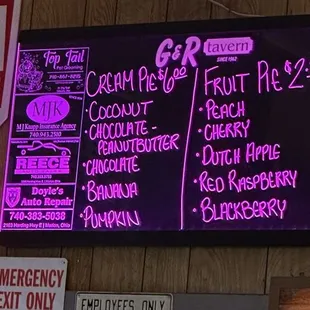 Top Tail
Pet Grooming
MJK
MJ Knapp Insurance Agency
740.943.2500
REECE
Doyle's
Auto Repair
740-383-5038
G&R tavern
SINCE 1962
CREAM PIE $6.00
• COCONUT
• CHOCOLATE -
PEANUTBUTTER
• CHOCOLATE
• BANANA
• PUMPKIN
FRUIT PIE $2.
• PEACH
• CHERRY
• DUTCH APPLE
• RED RASPBERRY
• BLACKBERRY
EMERGENCY
EXIT ONLY
EMPLOYEES ONLY